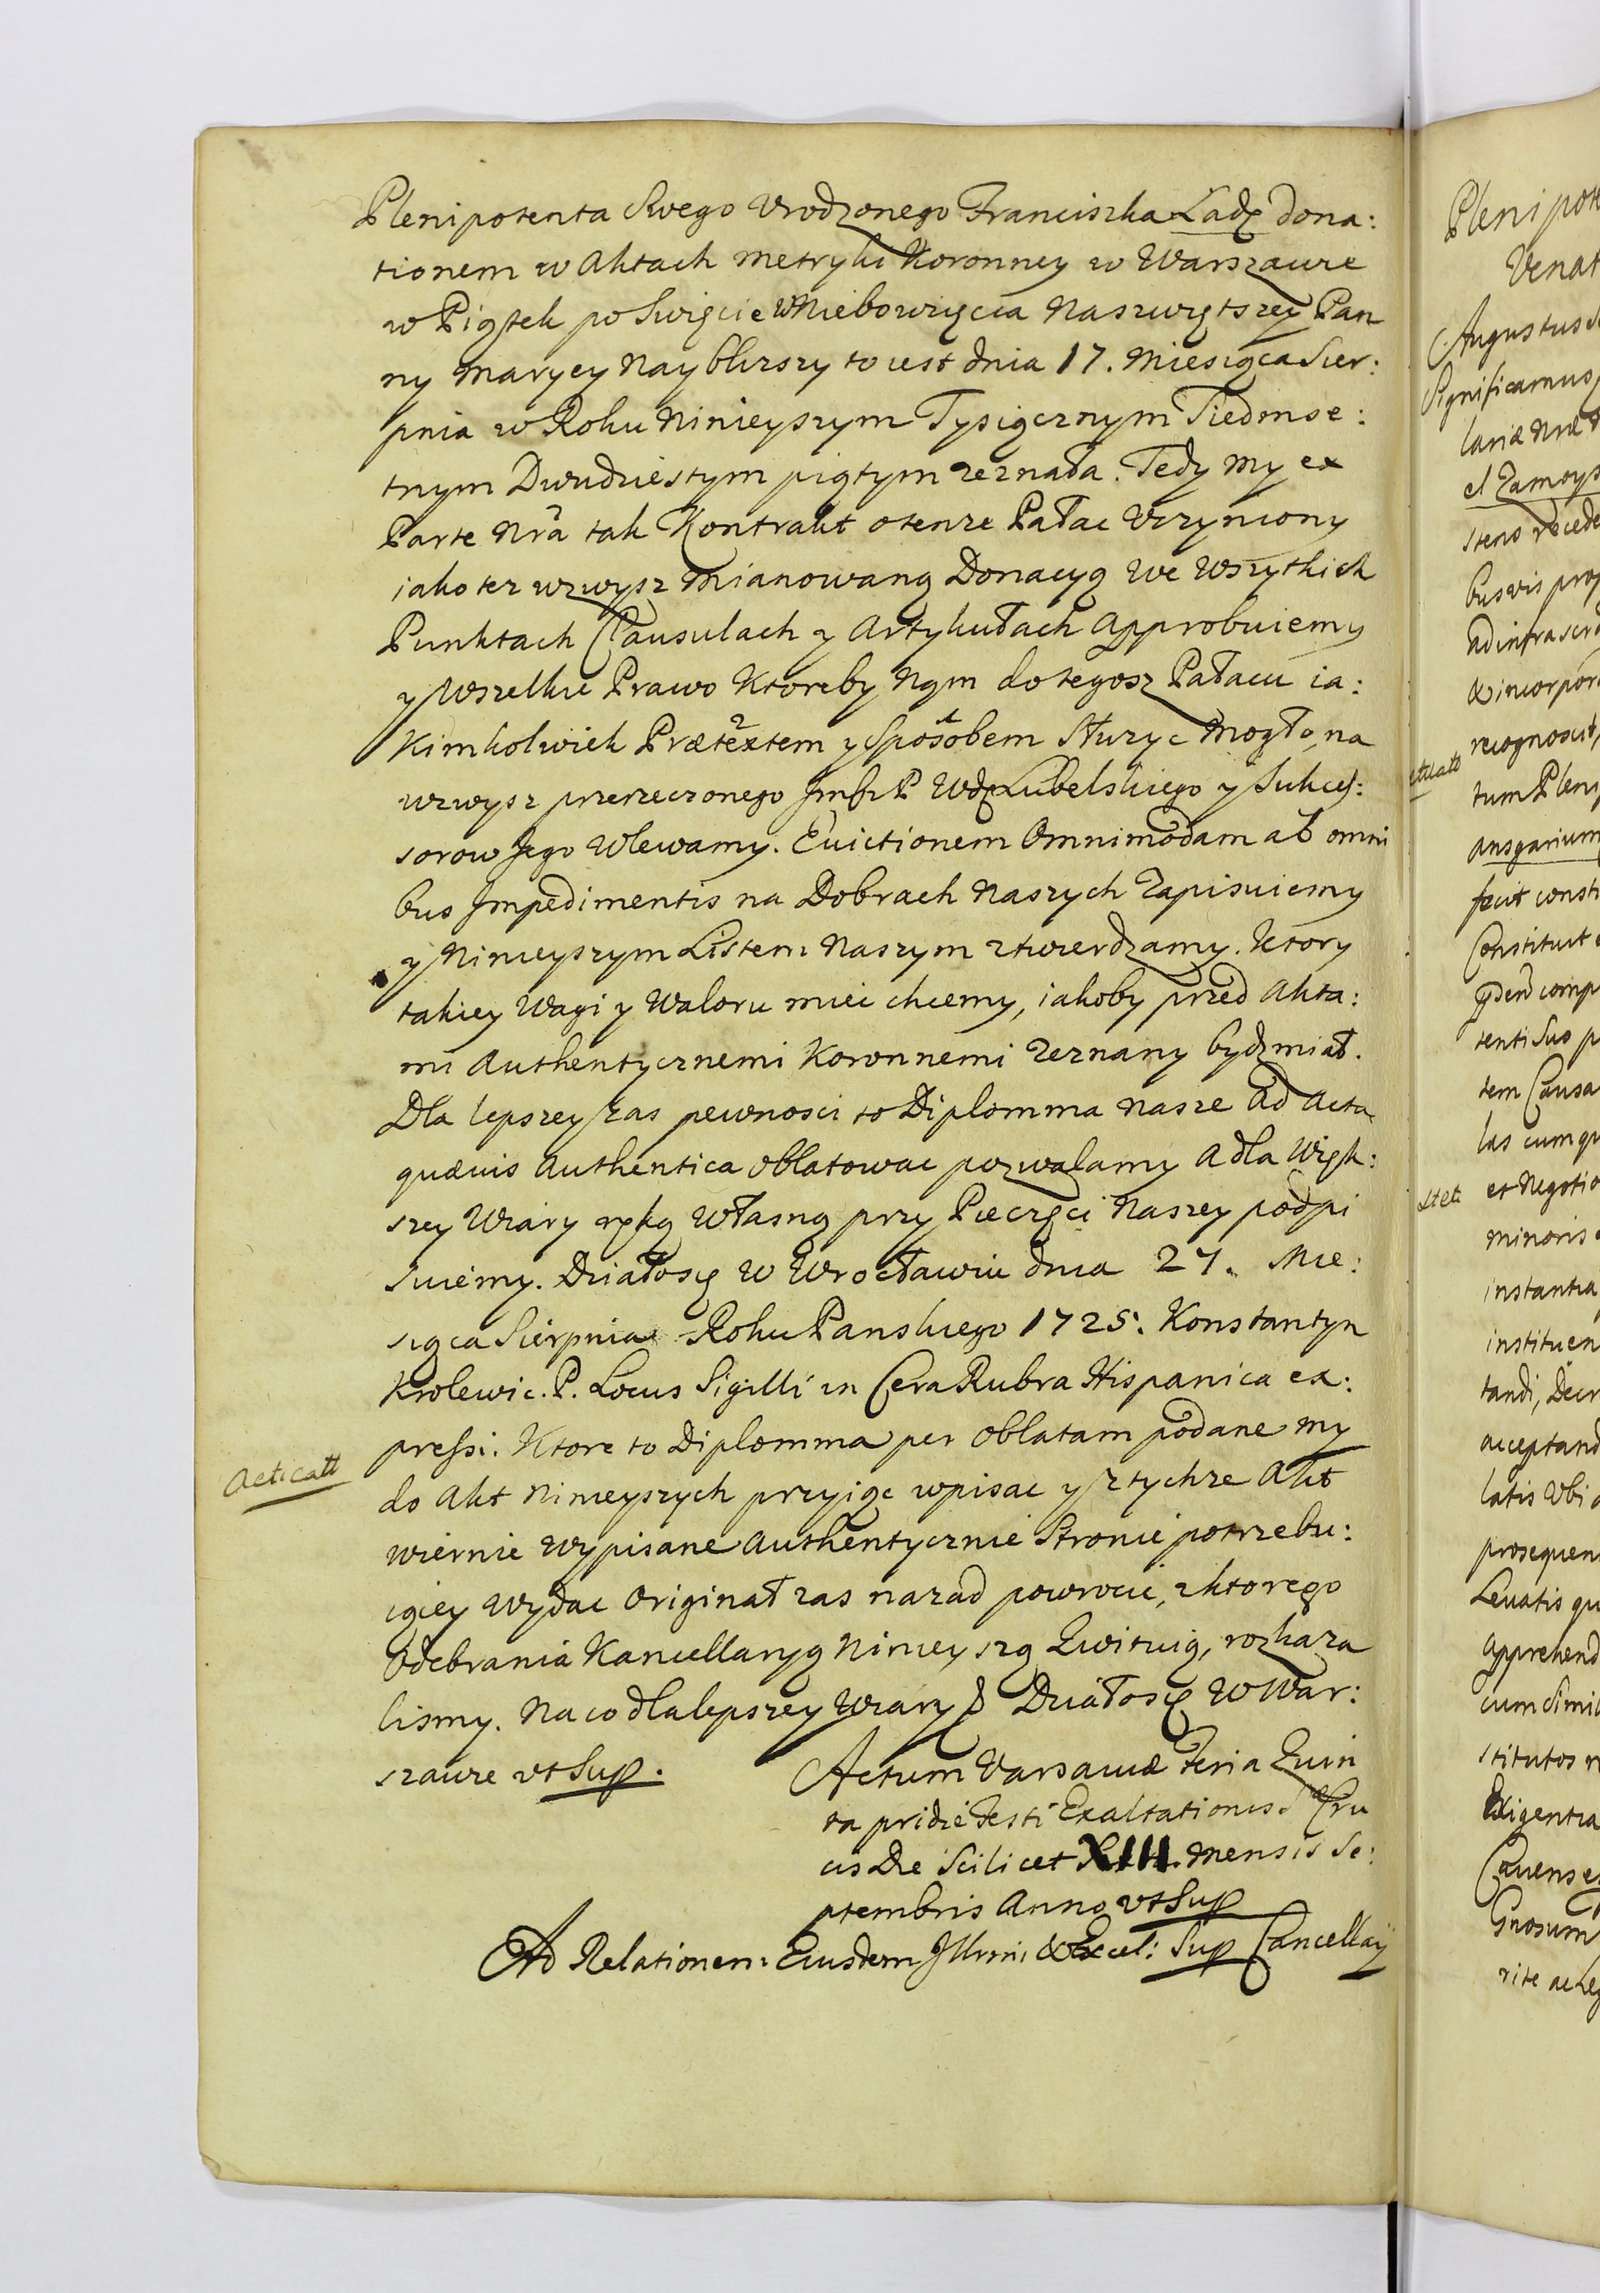 Plenipotenta Swego Vrodzonego Franciszka Ładę dona:
tionem w Aktach Metryki Koronney w Warszawie
w Piątek po Święcie W Niebowzięcia Naszwiętszey Pan
ny Maryey Nayblizszy to iest dnia 17. Miesiąca Sier:
pnia w Roku Ninieyszym Tysiącznym Siedmse:
tnym Dwudziestym piątym zeznała. Tedy my ex
Parte Nra tak Kontrakt o tenze Pałac Vczyniony
iako tez wzwysz mianowaną Donacyą we wszytkich
Punktach Clausulach y Artykułach Approbuiemy
y Wszelkie Prawo Ktoreby Nąm do tegosz Pałacu ia:
kimkolwiek Prætextem y Sposobem Słuzyc Mogło, na
wzwysz przerzeczonego Jmśi P Wdę Lubelskiego y Sukces:
sorow Jego Wlewamy. Euictionem Omnimodam ab omni
bus Jmpedimentis na Dobrach Naszych Zapisuiemy
y Ninieyszym Listem Naszym ztwierdzamy. Ktory
takiey Wagi y Waloru miec chcemy, iakoby przed Akta:
mi Authentycznemi Koronnemi Zeznany bydz miał.
Dla lepszey zas pewnosci to Diplomma Nasze ad Acta
quæuis Authentica oblatowac pozwalamy A dla Więk:
szey Wiary ręką Własną przy Pieczęci Naszey podpi
suiemy. Działosię w Wrocławiu dnia 27. Mie:
siąca Sierpnia Roku Panskiego 1725. Konstantyn
Krolewic. P. Locus Sigilli in Cera Rubra Hispanica ex:
pressi. Ktore to Diplomma per Oblatam podane my
Acticatt
do Akt Ninieyszych przyiąc wpisac y z tychze Akt
wiernie Wypisane Authentycznie Stronie potrzebu:
iącey Wydac Originał zas nazad powrocic, z ktorego
Odebrania Kancellaryą Ninieyszą Kwituią, rozkaza
lismy. Na co dla lepszey Wiary & Działosię W War:
szawie vt Sup.
Actum Varsauiæ Feria Quin
ta pridie Festi Exaltationis S Cru
cis Die Scilicet XIII. Mensis Se:
ptembris Anno vt Sup
Ad Relationem Eiusdem Jllrmi & Excel: Sup Cancellarij
Plenipot
Venat
Augustus
Significamus
lariæ Nræ
el Zamoys
stens
busvis prop
ad infrascr
& incorpor
recognoscit,
ctuato
tum Pleni
Ansgarium
fecit consti
Constituit
comp
tenti suo p
tem Causa
las cumqu
Stet:
et Negotio
minoris
instantia
instituen
tandi, Decr
acceptand
latis Vbi
prosequen
Levatis qu
Apprehend
cum Simil
stitutos
Exigentia
Cauens
Gnosum
rite ac Leg